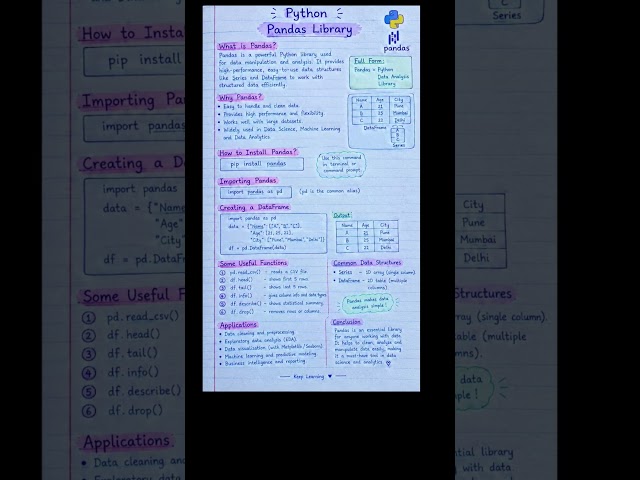 Python
Pandas Library
pandas
What is Pandas?
Pandas is a powerful Python library used
for data manipulation and analysis. It provides
high-performance, easy-to-use data structures
like Series and DataFrame to work with
structured data efficiently.
Full Form:
Pandas = Python
Data Analysis
Library
Why Pandas?
• Easy to handle and clean data.
• Provides high performance and flexibility.
• Works well with large datasets.
• Widely used in Data Science, Machine Learning
and Data Analytics.
Name Age City
A 21 Pune
B 25 Mumbai
C 22 Delhi
DataFrame
A
B
C
Series
How to Install Pandas?
pip install pandas
Use this command
in terminal or
command prompt.
Importing Pandas
import pandas as pd
(pd is the common alias)
Creating a DataFrame
import pandas as pd
data = {"Name": ["A","B","C"],
"Age": [21, 25, 22],
"City": ["Pune", "Mumbai", "Delhi"]}
df = pd.DataFrame(data)
Output:
Name Age City
A 21 Pune
B 25 Mumbai
C 22 Delhi
Some Useful Functions
1 pd.read_csv() - reads a CSV file
2 df.head() - shows first 5 rows
3 df.tail() - shows last 5 rows
4 df.info() - gives column info and data types
5 df.describe() - shows statistical summary
6 df.drop() - removes rows or columns.
Common Data Structures
• Series - 1D array (single column).
• DataFrame - 2D table (multiple
columns).
Pandas makes data
analysis simple!
Applications
• Data cleaning and preprocessing
• Exploratory data analysis (EDA)
• Data visualization (with Matplotlib / Seaborn)
• Machine learning and predictive modeling
• Business intelligence and reporting.
Conclusion
Pandas is an essential library
for anyone working with data.
It helps to clean, analyze and
manipulate data easily, making
it a must-have tool in data
science and analytics.
Keep Learning
How to Install
pip install
Importing Pan
import pandas
Creating a Da
import pandas
data = {"Name
"Age"
"City"
df = pd.DataFr
Some Useful F
1 pd.read_csv()
2 df.head()
3 df.tail()
4 df.info()
5 df.describe()
6 df.drop()
Applications
• Data cleaning an
C
Series
City
Pune
Mumbai
Delhi
Structures
array (single column).
table (multiple
mns).
data
ple!
ntial library
g with data.